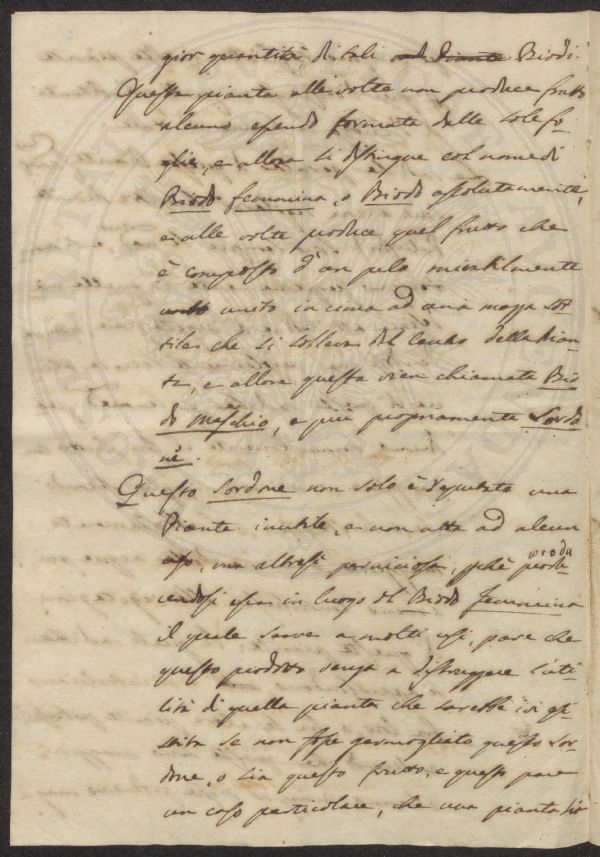 gior quantità di tali Biodi.
Questa pianta alle volte non produce frutto
alcuno essendo formata delle sole fo-
glie, e allora si distingue col nome di
Biodo femmina, o Biodo assolutamente,
e alle volte produce quel frutto che
è composto d'un pelo
unito in cima ad una mazza sot-
tile che si solleva dal centro della Pian-
ta, e allora questa vien chiamata Bio-
do Maschio, e più propriamente Sordo-
ne.
Questo Sordone non solo è reputato una
Pianta inutile, e non atta ad alcun
uso, ma altresì perniciosa, perchè produ
cendosi essa in luogo del Biodo femmina
il quale serve a molti usi, pare che
questo prodotto venga a distruggere l'uti-
lità di quella pianta che sarebbe ivi esi-
stita se non fosse germogliato questo Sor-
done, o sia questo frutto, e questo pare
un caso particolare, che una pianta sia